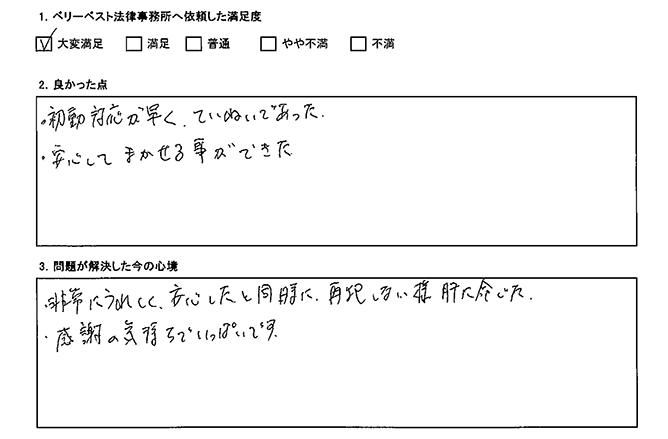 1. ベリーベスト法律事務所へ依頼した満足度
☑ 大変満足 □ 満足 □ 普通 □ やや不満 □ 不満
2. 良かった点
・初動対応が早く、ていねいであった.
・安心してまかせる事ができた
3. 問題が解決した今の心境
・非常にうれしく、安心したと同時に、再犯しない様肝に命じた.
・感謝の気持ちでいっぱいです.